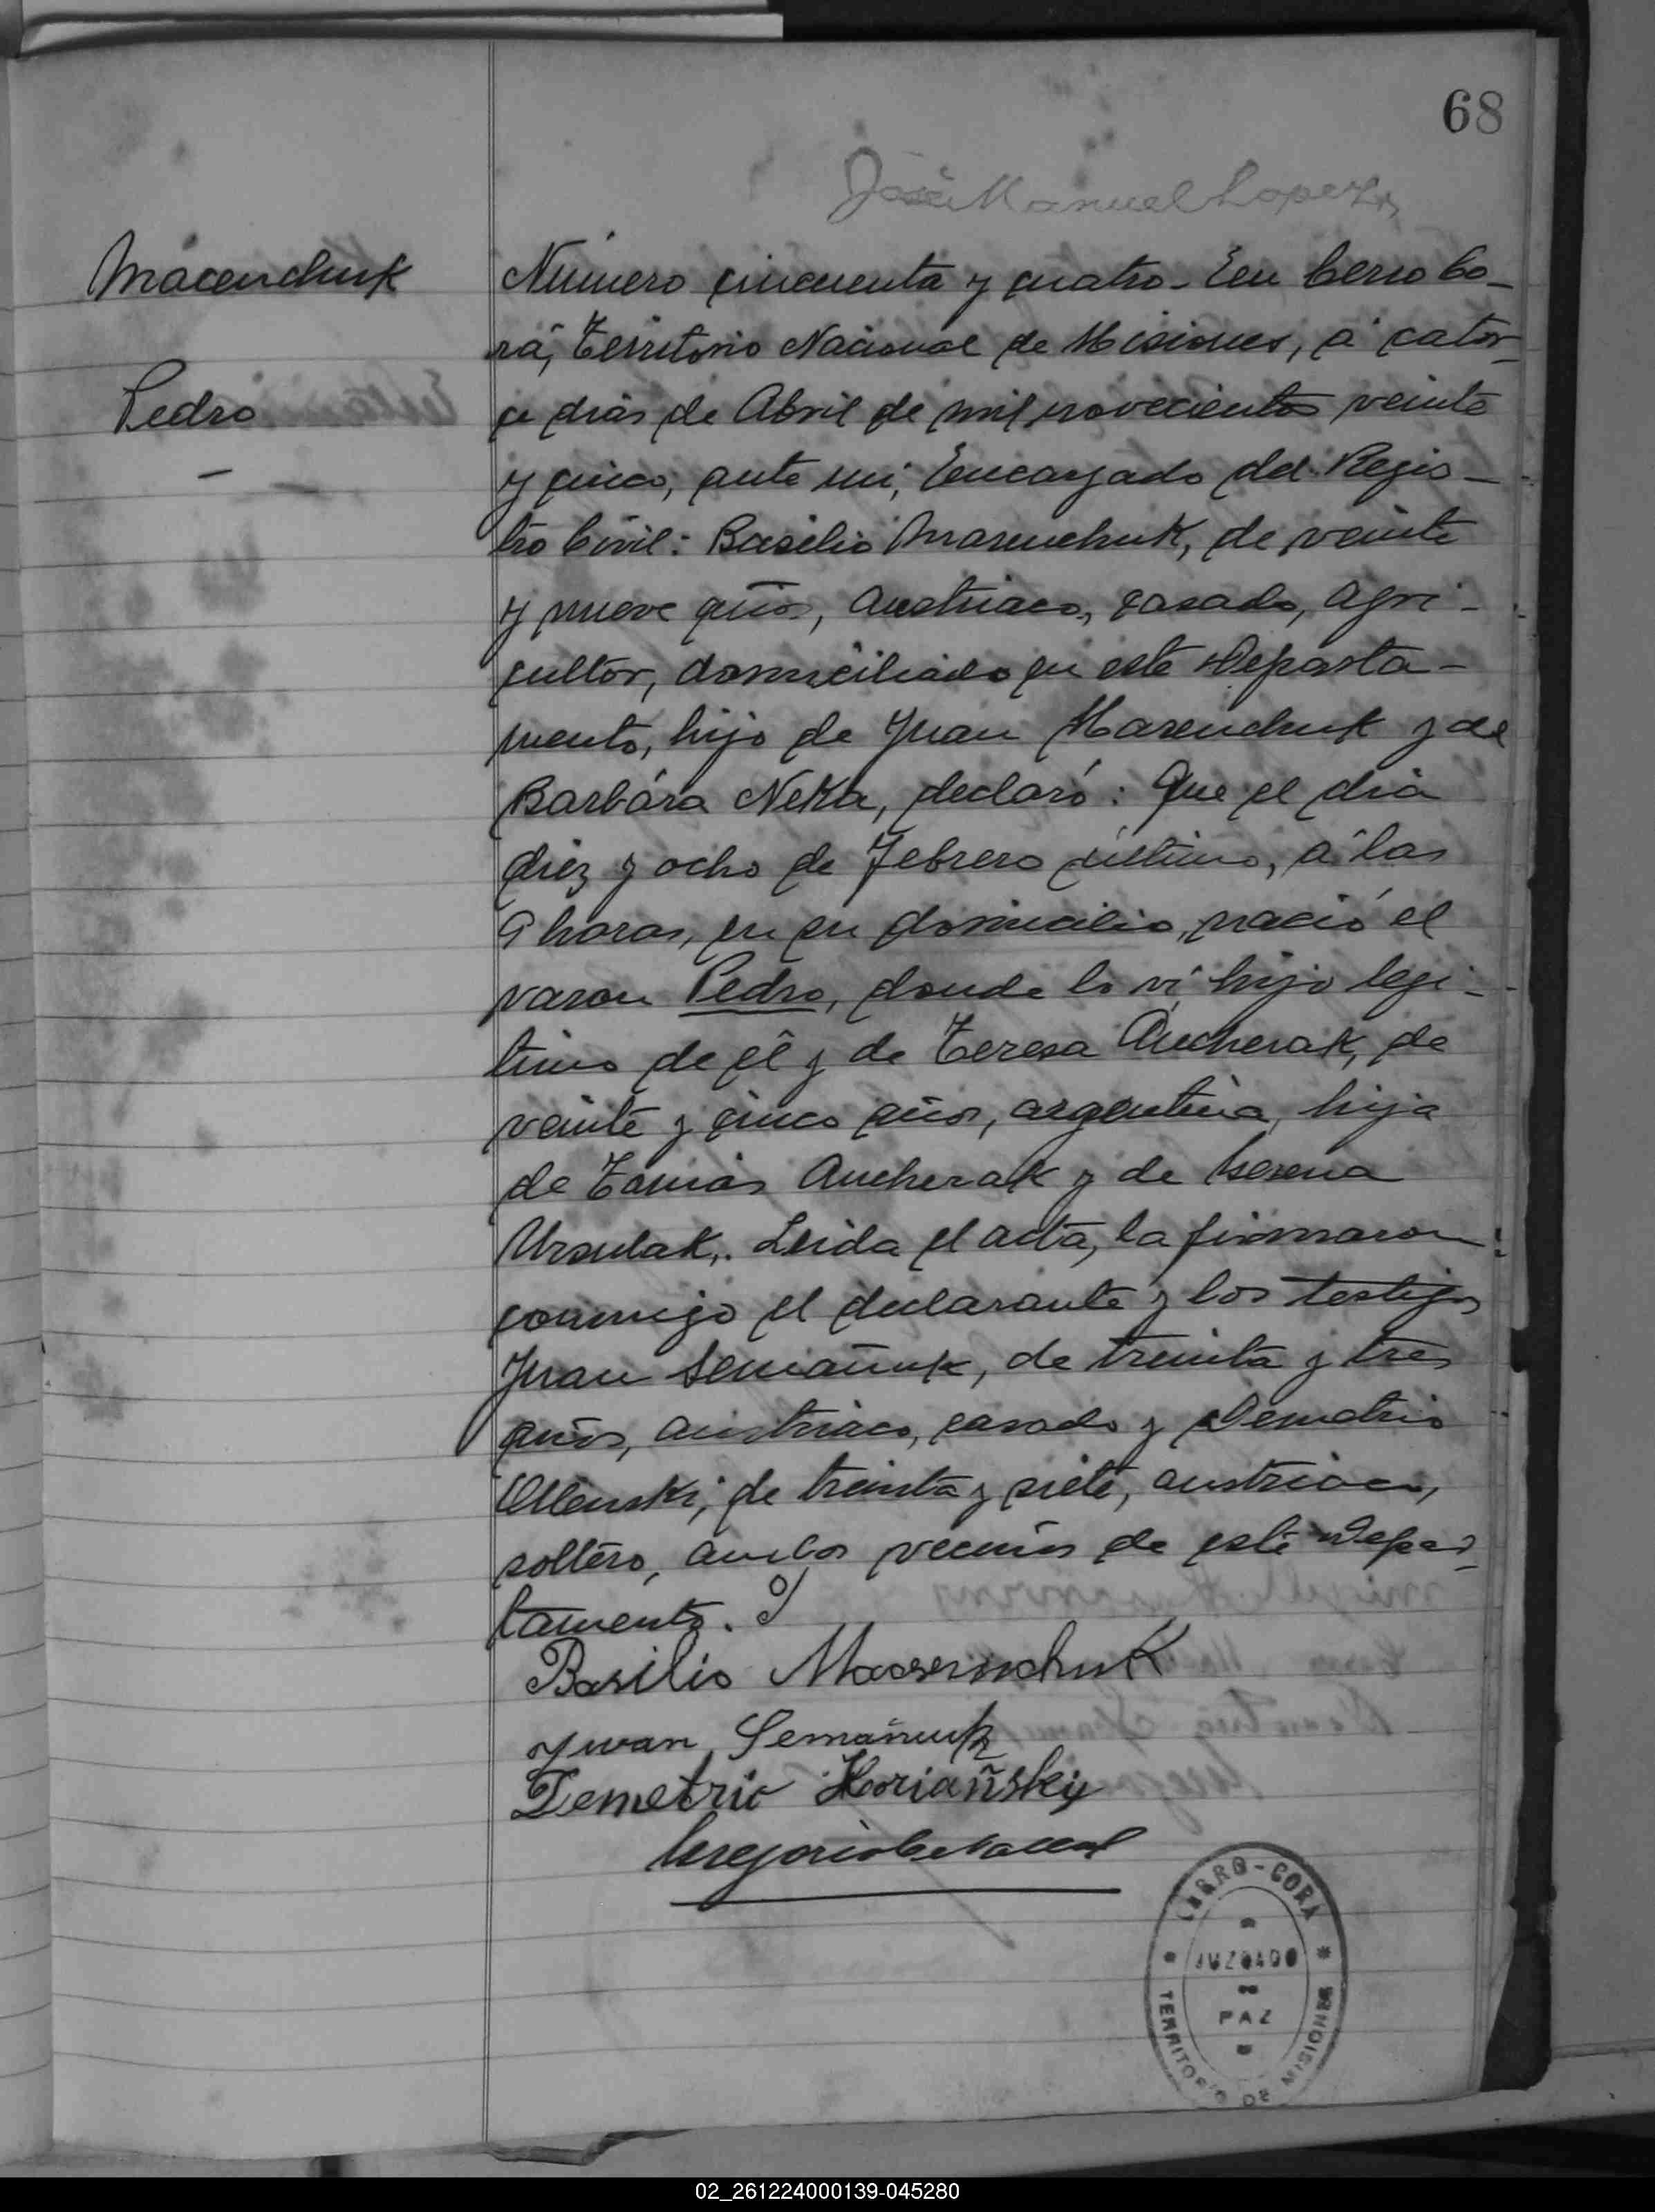 68
José Manuel Lopez
Macenchuk
Pedro
Número cincuenta y cuatro - En Cerro Co-
rá, Territorio Nacional de Misiones, á cator-
ce dias de Abril de mil novecientos veinte
y cinco, ante mi, Encargado del Regis-
tro Civil: Basilio Marenchuk, de veinte
y nueve años, austriaco, casado, agri-
cultor, domiciliado en este Departa-
mento, hijo de Juan Marenchuk y de
Barbára Neka, declaró: Que el dia
diez y ocho de Febrero último, á las
9 horas, en su domicilio, nació el
varon Pedro, donde lo ví, hijo legi-
timo de él y de Teresa Aucherak, de
veinte y cinco años, argentina, hija
de Tomás Aucherak y de
Ursulak. Leida el acta, la firmaron
conmigo el declarante y los testigos
Juan Semañuk, de treinta y tres
años, austriaco, casado y Demetrio
de treinta y siete, austriaco,
soltero, ambos vecinos de este Depar-
tamento.
Basilio
Ywan Semañuk
Demetrio Horiañskij
Gregorio
CERRO-CORÁ
JUZGADO
PAZ
TERRITORIO DE MISIONES
02_261224000139-045280